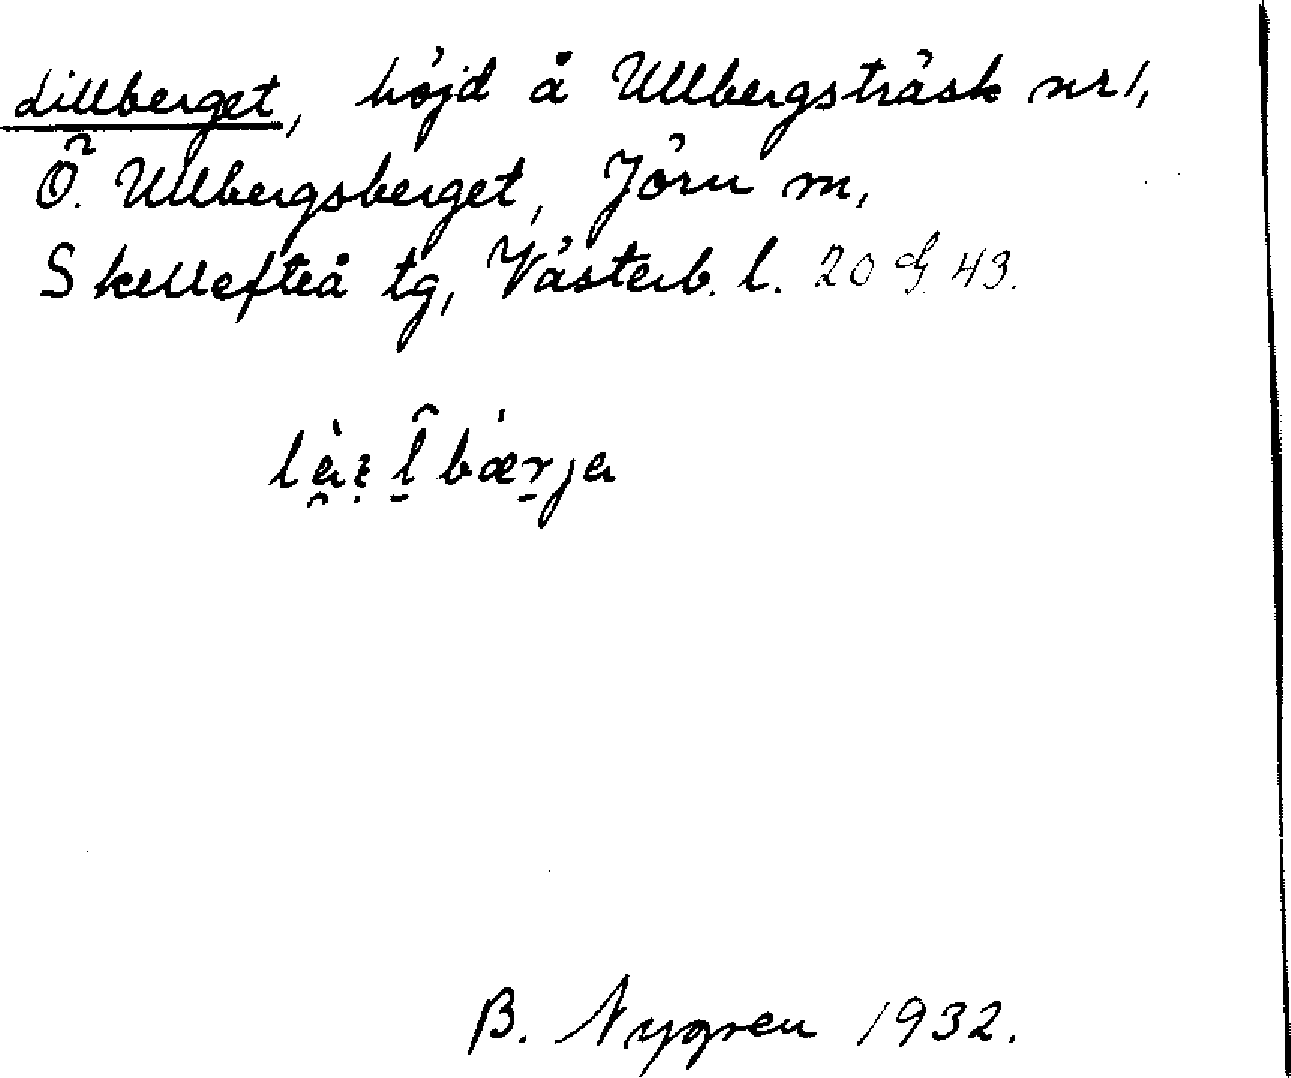 Lillberget, höjd å Ullbergsträsk nr 1,
Ö. Ullbergsberget, Jörn m,
Skellefteå tg, Västerb. l. 20 43.
bærja
B. Nygren 1932.